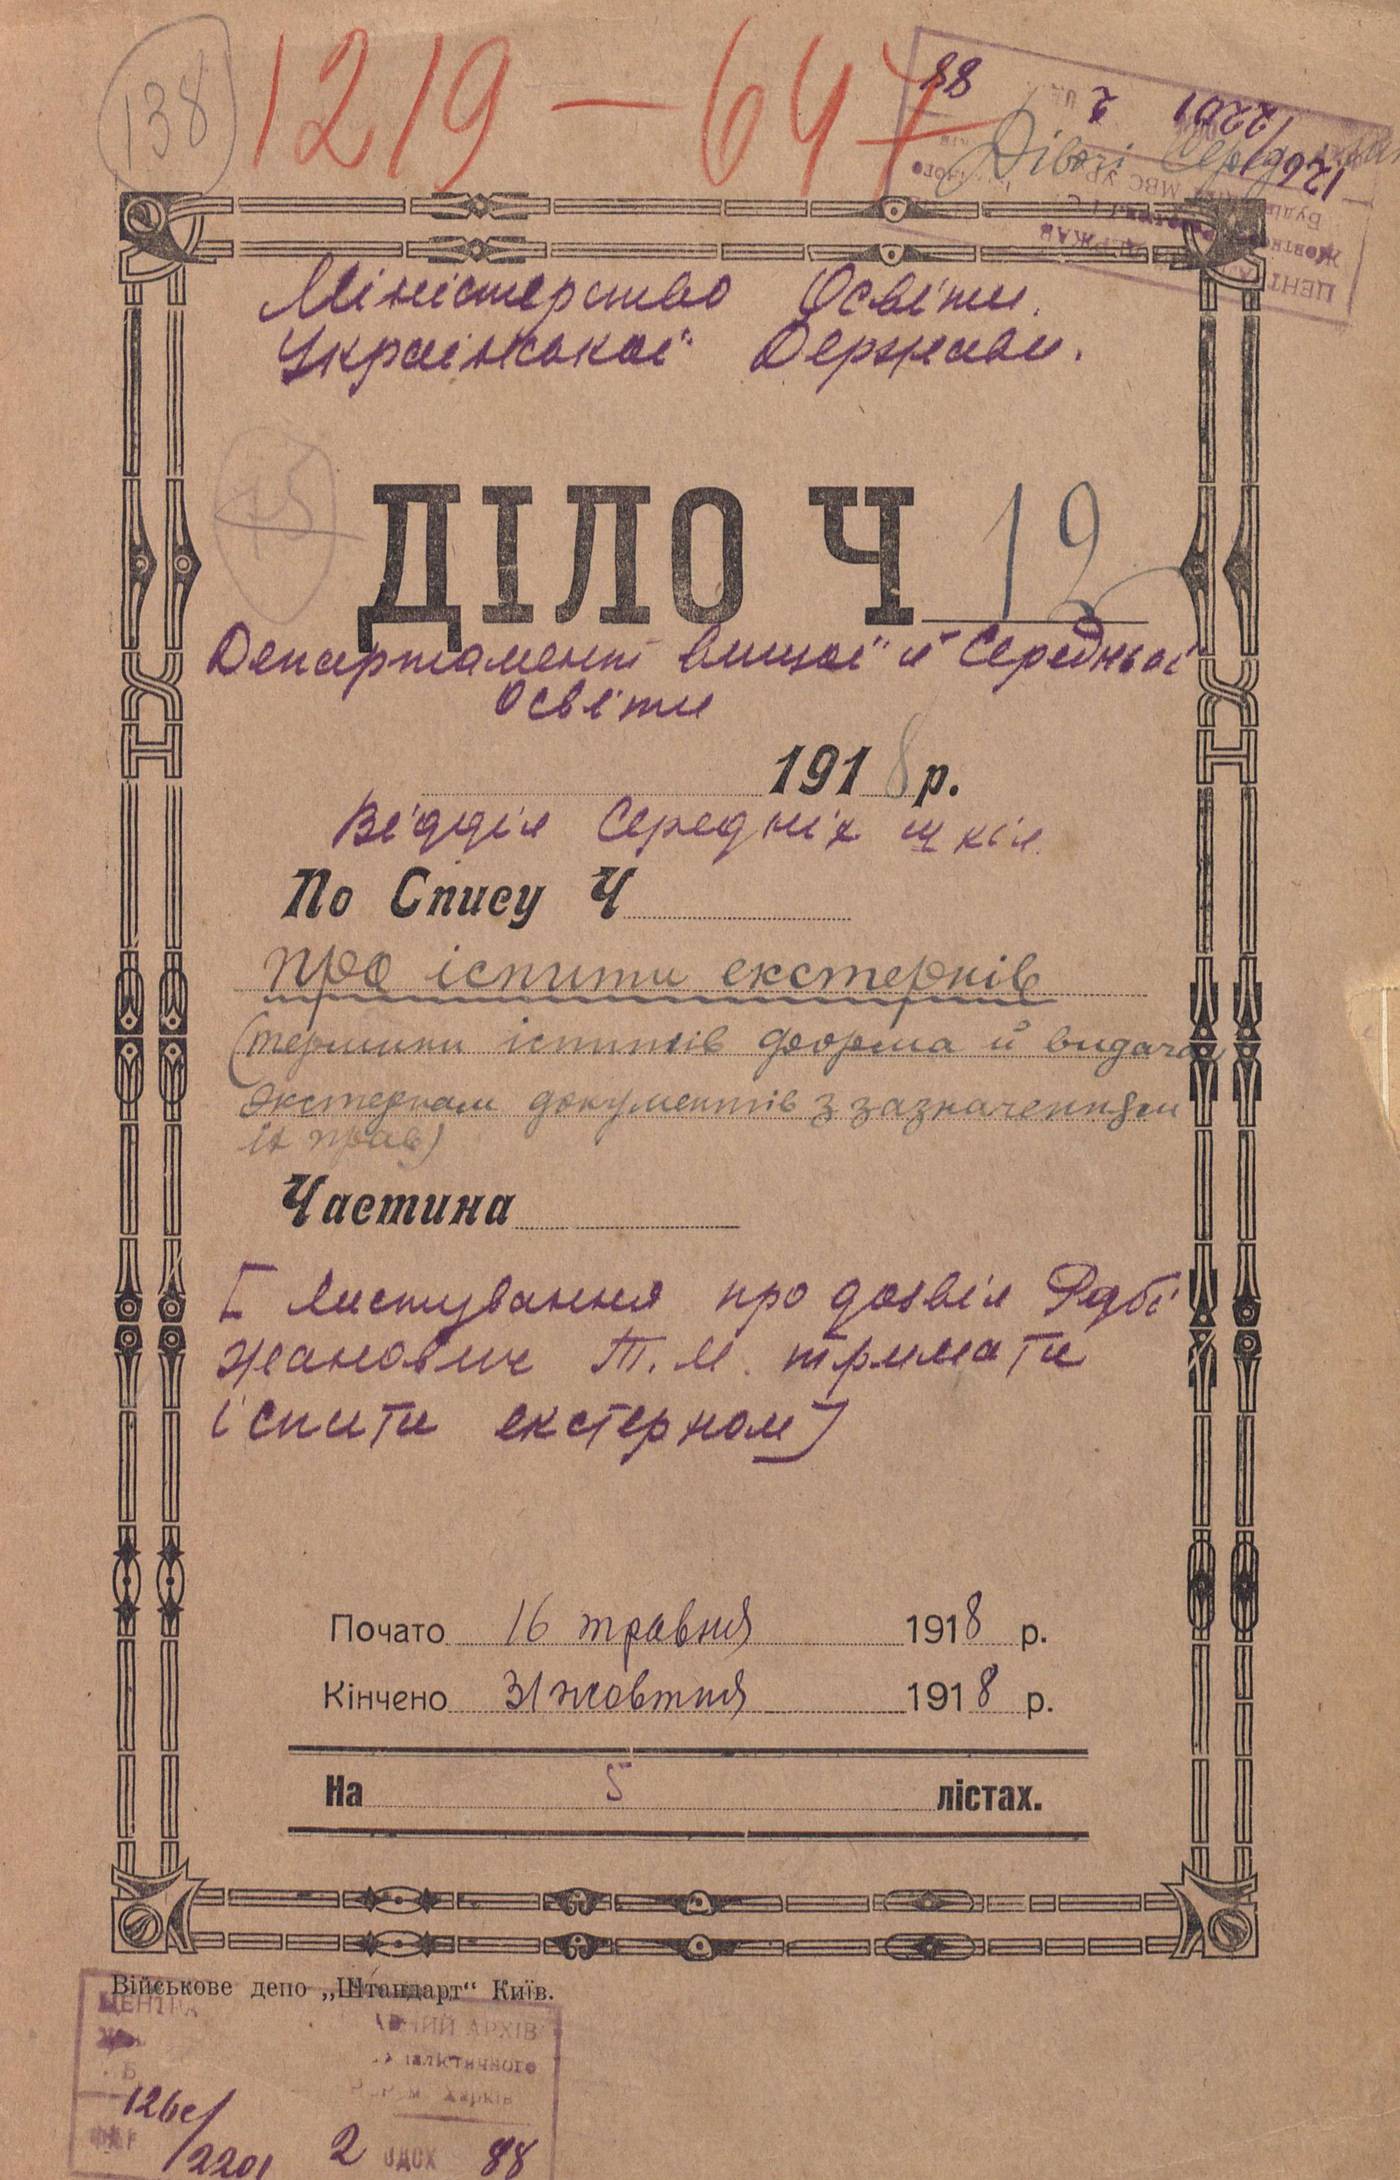 138
1219 — 647
88
2
2201
Дівочі
126
Міністерство Освіти
Української Держави.
75
ДІЛО Ч 12
Департамент вищої й Середньої
Освіти
1918 р.
Відділ Середніх шкіл
По Спису Ч
про іспити екстернів
(терміни іспитів форма й видача
екстернам документів з зазначенням
їх прав)
Частина
[ листування про дозвіл Радбі
жанович Т. М. тримати
іспити екстерном]
Почато 16 травня 1918 р.
Кінчено 31 жовтня 1918 р.
На 5 лістах.
Військове депо „Штандарт“ Київ.
АРХІВ
Харків
126с/
2201 2 88